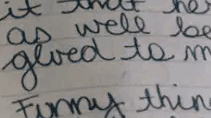 it that her
as well be
glued to m
Funny thin